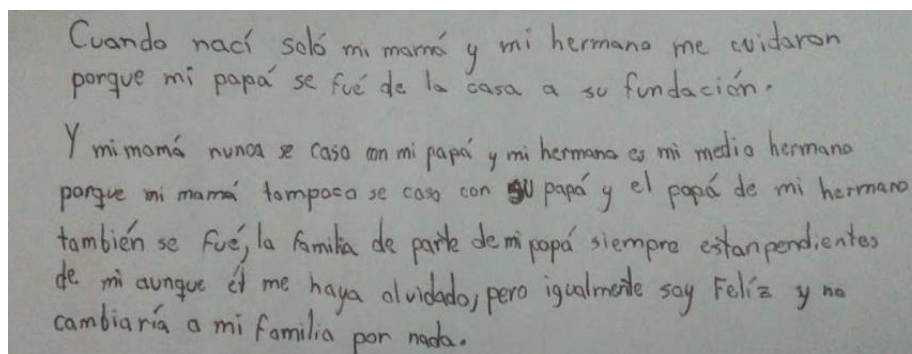 Cuando nací soló mi mamá y mi hermano me cuidaron
porque mi papá se fué de la casa a su fundación.
Y mi mamá nunca se caso con mi papá y mi hermano es mi medio hermano
porque mi mamá tampoco se caso con su papá y el papá de mi hermano
también se fué, la familia de parte de mi papá siempre estan pendientes
de mi aunque él me haya olvidado, pero igualmente soy Felíz y no
cambiaría a mi familia por nada.